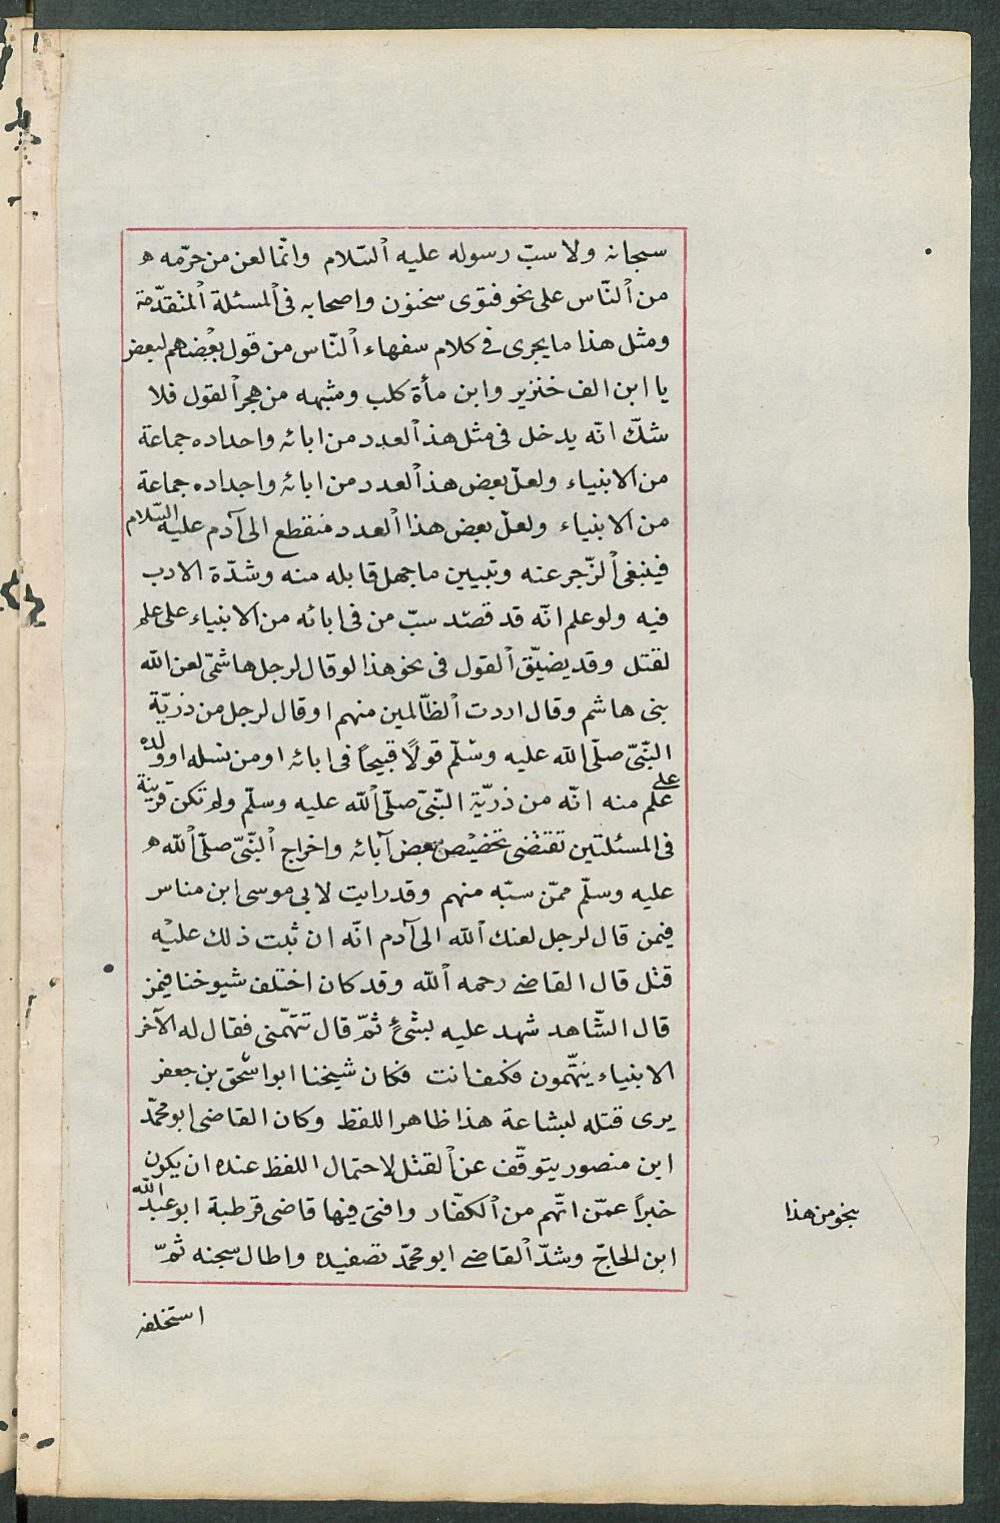 سبحانه ولا سبّ رسوله عليه السّلام وانّما لعن من حرّمه ه
من النّاس على نحو فتوى سخنون واصحابه فى المسئلة المتقدّمة
ومثل هذا ما يجرى فى كلام سفهاء النّاس من قول بعضاهم لبعض
يا ابن الف خنزير وابن مأة كلب ومثبهه من هجر القول فلا
شكّ انّه يدخل فى مثل هذ العدد من ابائه واحداده جماعة
من الانبياء ولعلّ بعض هذ العدد من ابائه واجداده جماعة
من الانبياء ولعلّ بعض هذا العدد منقطع الى آدم عليه السّلام
فينبغى الزّجر عنه وتبيين ما جهل قابله منه وشدّة الادب
فيه ولو علم انّه قد قصد سبّ من فى ابائه من الانبياء على علم
لقتل وقد يضيّق القول فى نحو هذا لو قال لرجل هاشمّى لعن الله
بنى هاشم وقال اردت الظّالمين منهم او قال لرجل من ذريّة
النّبىّ صلّى الله عليه وسلّم قولًا قبيحاً فى ابائه او من نسله او ولده
على علم منه انّه من ذريّة النّبىّ صلّى الله عليه وسلّم ولم تكن قرينة
فى المسئلتين تقتضى تخصيص بعض آبائه واخراج النّبىّ صلّى الله ه
عليه وسلّم ممّن سبّه منهم وقد رايت لابى موسى ابن مناس
فيمن قال لرجل لعنك الله الى آدم انّه ان ثبت ذلك عليه
قتل قال القاضى رحمه الله وقد كان اختلف شيوخنا فيمن
قال الشّاهد شهد عليه بشئ ثمّ قال تتهّمنى فقال له الآخر
الانبياء يتّهمون فكيف انت فكان شيخنا ابو اسحق بن جعفر
يرى قتله لبشاعة هذا ظاهر اللفظ وكان القاضى ابو محمّد
ابن منصور يتوقّف عن القتل لاحتمال اللفظ عنده ان يكون
خبراً عمّن اتّهم من الكفّار وافتى فيها قاضى قرطبة ابو عبد الله
بنحو من هذا
ابن الحاجّ وشدّ القاضى ابو محمّد تصفيده واطال سجنه ثمّ
استخلفه